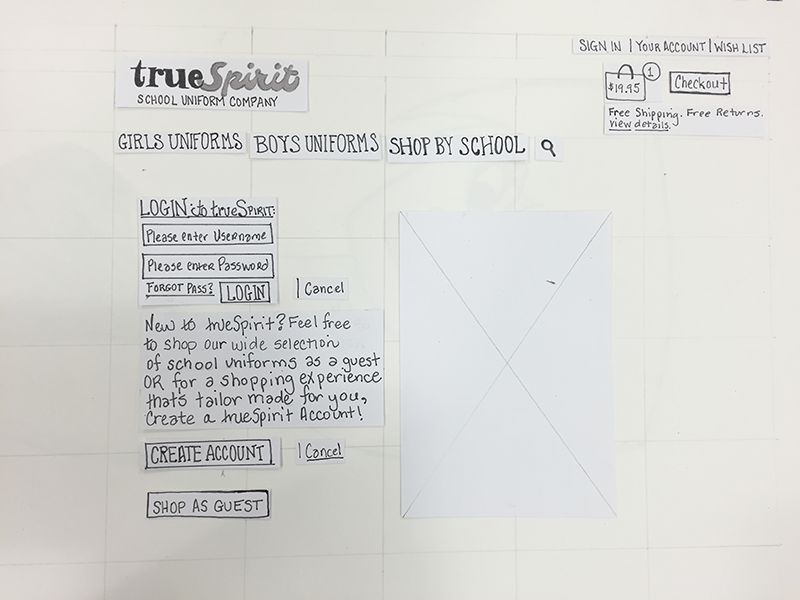 SIGN IN | YOUR ACCOUNT | WISH LIST
trueSpirit
SCHOOL UNIFORM COMPANY
$19.95
1
Checkout
Free Shipping. Free Returns.
view details.
GIRLS UNIFORMS BOYS UNIFORMS SHOP BY SCHOOL
LOGIN to trueSPIRIT:
Please enter Username
Please enter Password
FORGOT PASS? LOGIN | Cancel
New to trueSpirit? Feel free
to shop our wide selection
of school uniforms as a guest
OR for a shopping experience
that's tailor made for you,
Create a trueSpirit Account!
CREATE ACCOUNT | Cancel
SHOP AS GUEST